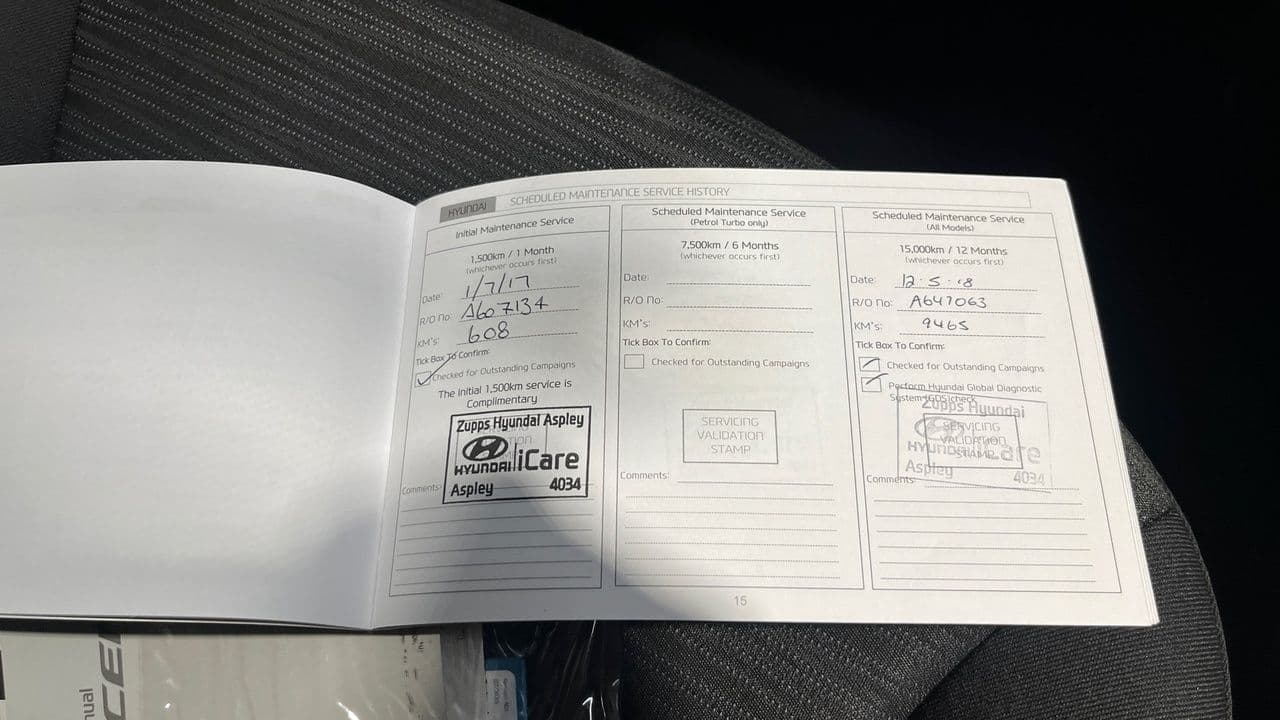 HYUNDAI SCHEDULED MAINTENANCE SERVICE HISTORY
Initial Maintenance Service
1,500km / 1 Month
(whichever occurs first)
Date: 1/7/17
R/O No: A607134
KM's: 608
Tick Box To Confirm:
Checked for Outstanding Campaigns
The Initial 1,500km service is
Complimentary
Zupps Hyundai Aspley
HYUNDAI iCare
Aspley 4034
Comments:
Scheduled Maintenance Service
(Petrol Turbo only)
7,500km / 6 Months
(whichever occurs first)
Date:
R/O No:
KM's:
Tick Box To Confirm:
Checked for Outstanding Campaigns
SERVICING
VALIDATION
STAMP
Comments:
Scheduled Maintenance Service
(All Models)
15,000km / 12 Months
(whichever occurs first)
Date: 12.5.18
R/O No: A647063
KM's: 9465
Tick Box To Confirm:
Checked for Outstanding Campaigns
Perform Hyundai Global Diagnostic
System (GDS) check
Zupps Hyundai
SERVICING
VALIDATION
STAMP
HYUNDAI iCare
Aspley 4034
Comments:
15